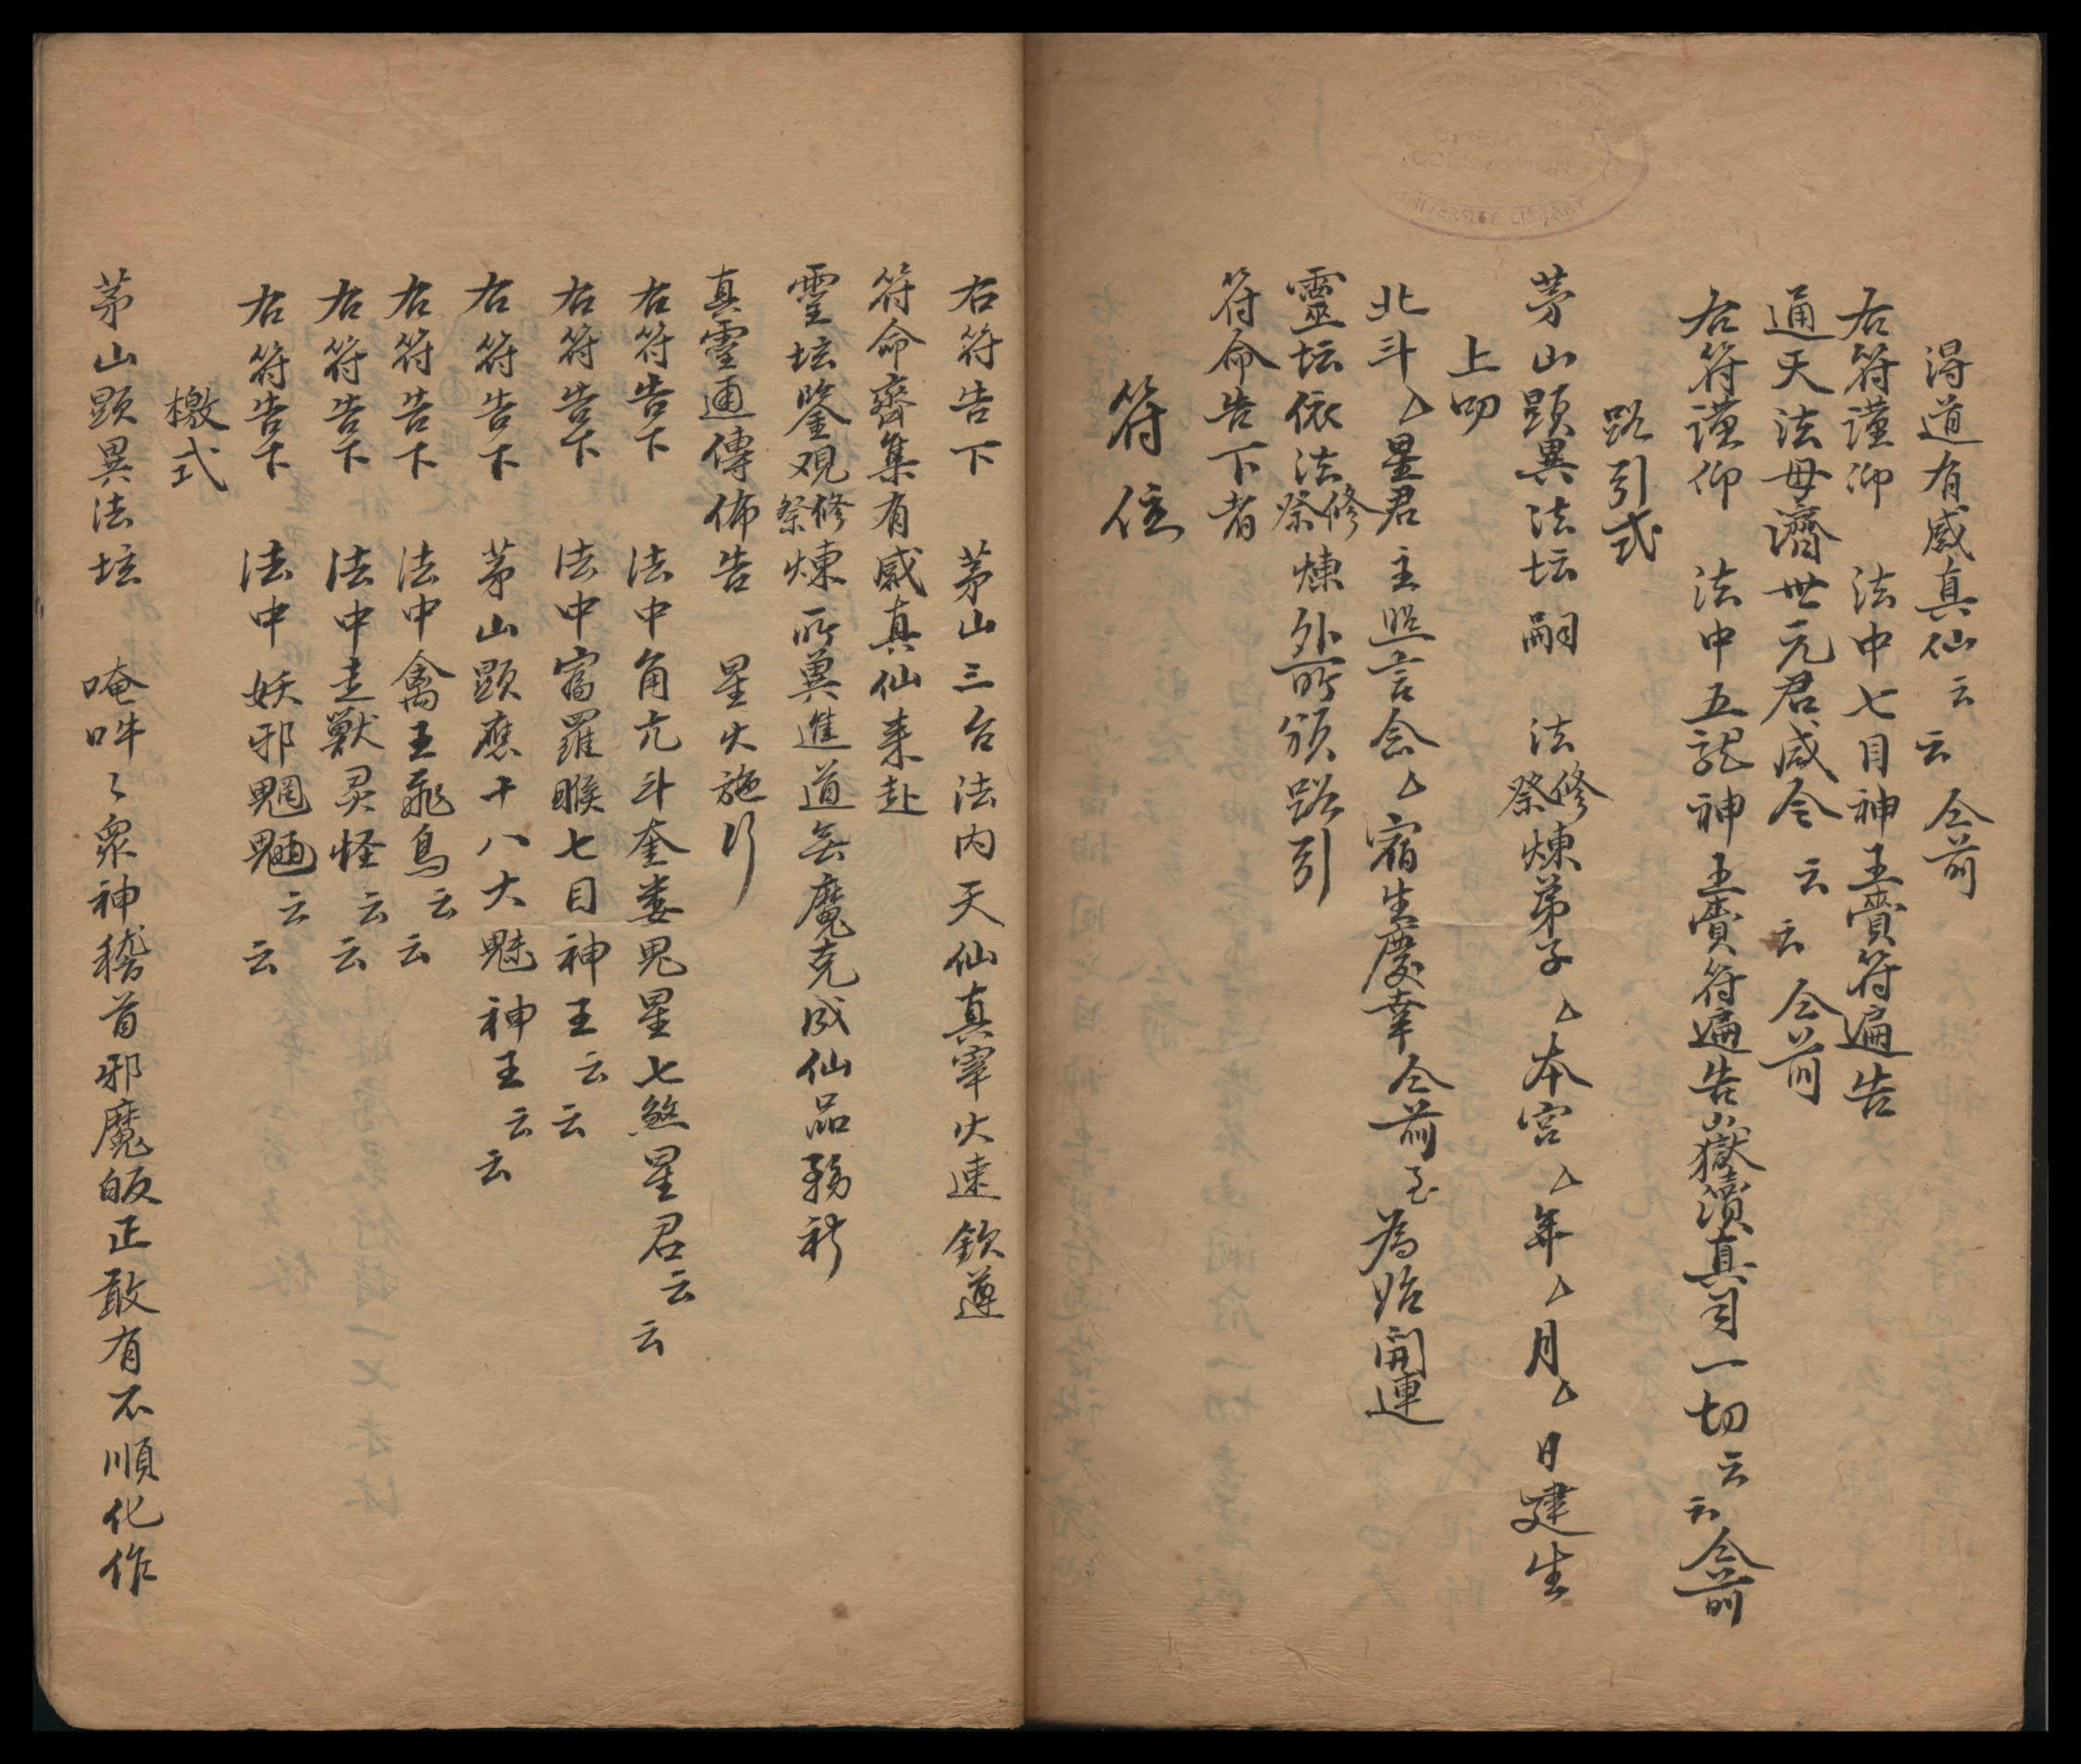 得道有感真仙云云仝前
右符謹仰　法中七目神王賫符遍告
通天法母濟世元君咸令云云仝前
右符謹仰　法中五龍神王賫符遍告山嶽瀆真司一切云云仝前
路引式
茅山顕異法坛嗣　法修祭煉弟子厶本宮厶年厶月厶日建生
上叩
北斗厶星君主照言念厶宿生慶幸仝前至為始開連
靈坛依法修祭煉外所頒路引
符命告下者
符位
右符告下　茅山三台法内天仙真宰火速欽遵
符命齊集有感真仙来赴
霊坛鑒观修祭煉所兾進道無魔克成仙品務祈
真霊通傳佈告　星火施行
右符告下　法中角亢斗奎婁鬼星七煞星君云云
右符告下　法中富羅睺七目神王云云
右符告下　茅山顕應十八大魅神王云云
右符告下　法中禽王飛鳥云云
右符告下　法中走獸灵怪云云
右符告下　法中妖邪魍魎云云
檄式
茅山顕異法坛　唵吽〻衆神稽首邪魔皈正敢有不順化作